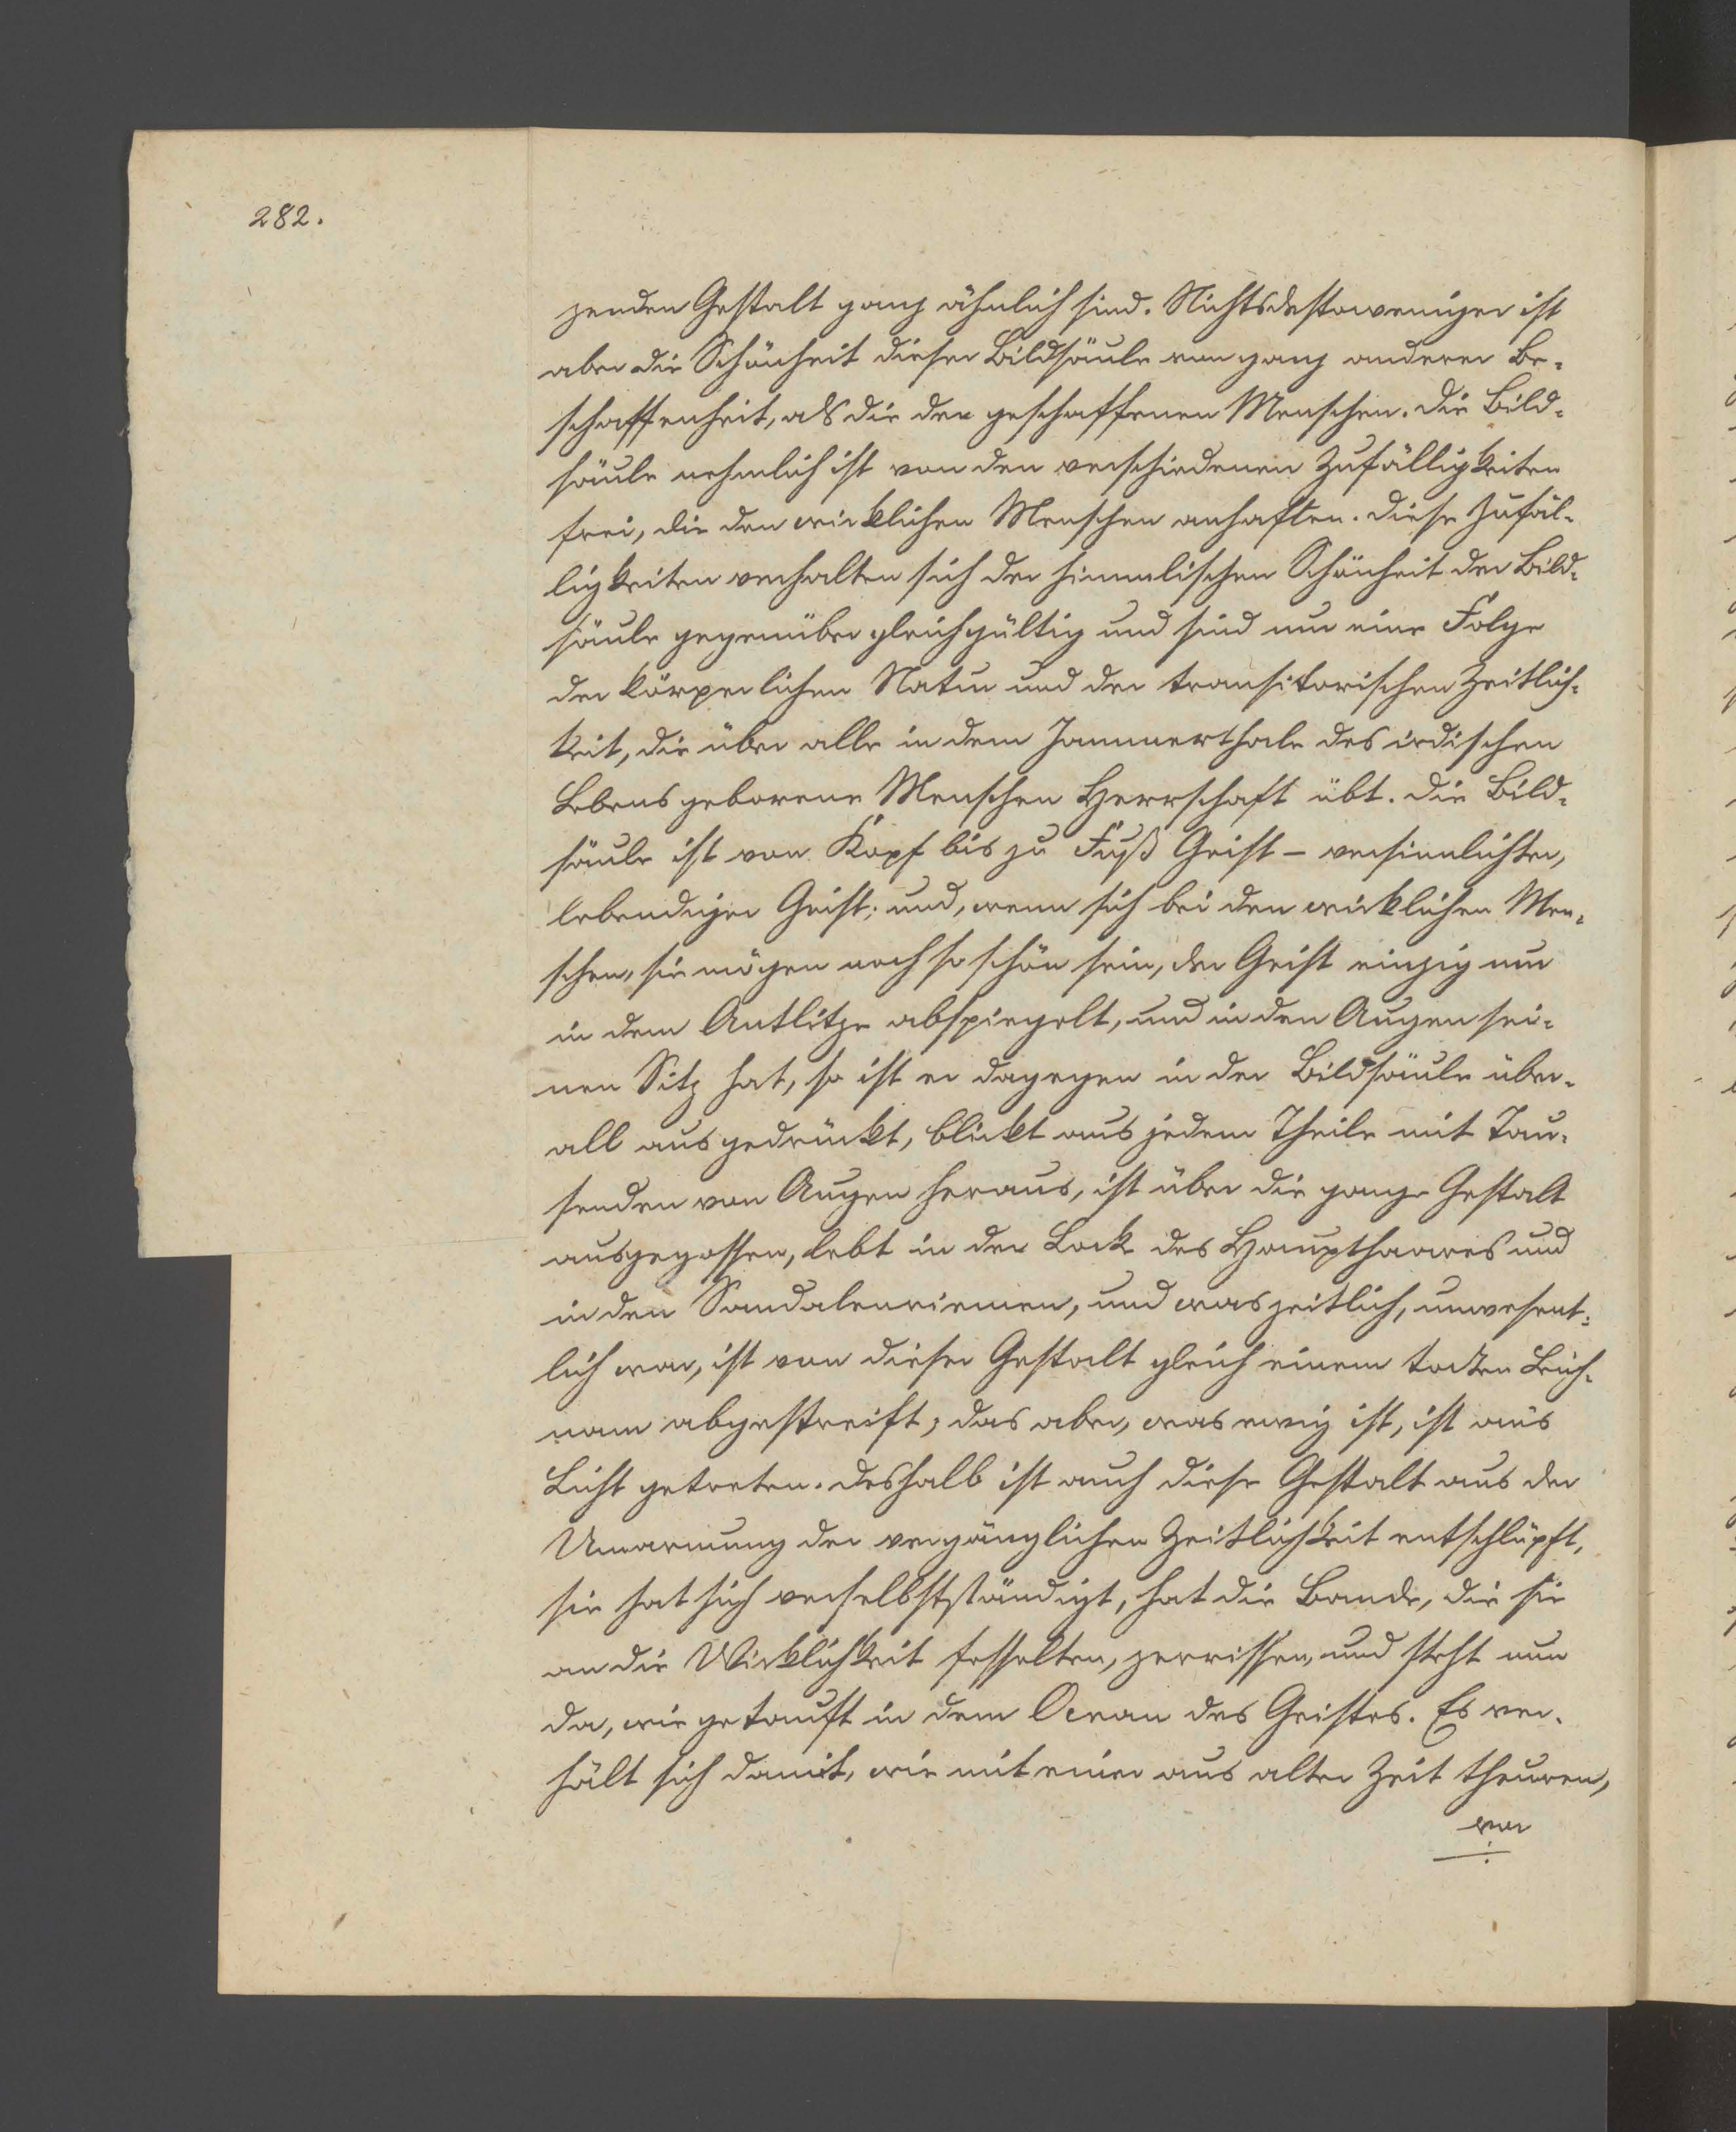 282.
zenden Gestalt ganz ähnlich sind. Nichtsdestoweniger ist
aber die Schönheit dieser Bildsäule von ganz anderer Be-
schaffenheit, als die der geschaffenen Menschen. Die Bild-
säule nehmlich ist von den verschiedenen Zufälligkeiten
frei, die den wirklichen Menschen anhaften. Diese Zufäl-
ligkeiten verhalten sich der himmlischen Schönheit der Bild-
säule gegenüber gleichgültig und sind nur eine Folge
der körperlichen Natur und der transitorischen Zeitlich-
keit, die über alle in dem Jammerthale des irdischen
Lebens geborene Menschen Herrschaft übt. Die Bild-
säule ist von Kopf bis zu Fuß Geist – versinnlichter,
lebendiger Geist; und, wenn sich bei den wirklichen Men-
schen, sie mögen noch so schön sein, der Geist einzig nur
in dem Antlitze abspiegelt, und in den Augen sei-
nen Sitz hat, so ist er dagegen in der Bildsäule über-
all ausgedrückt, blickt aus jedem Theile mit Tau-
senden von Augen heraus, ist über die ganze Gestalt
ausgegossen, lebt in der Lock des Haupthaares und
in den Sandalenriemen, und was zeitlich, unwesent-
lich war, ist von dieser Gestalt gleich einem todten Leich-
nam abgestreift; das aber, was ewig ist, ist ans
Licht getreten. Deshalb ist auch diese Gestalt aus der
Umarmung der vergänglichen Zeitlichkeit entschlüpft,
sie hat sich verselbstständigt, hat die Bande, die sie
an die Wirklichkeit fesselten, zerrissen, und steht nun
da, wie getauft in dem Ocean des Geistes. Es ver-
hält sich damit, wie mit einer aus alter Zeit theuren,
vor